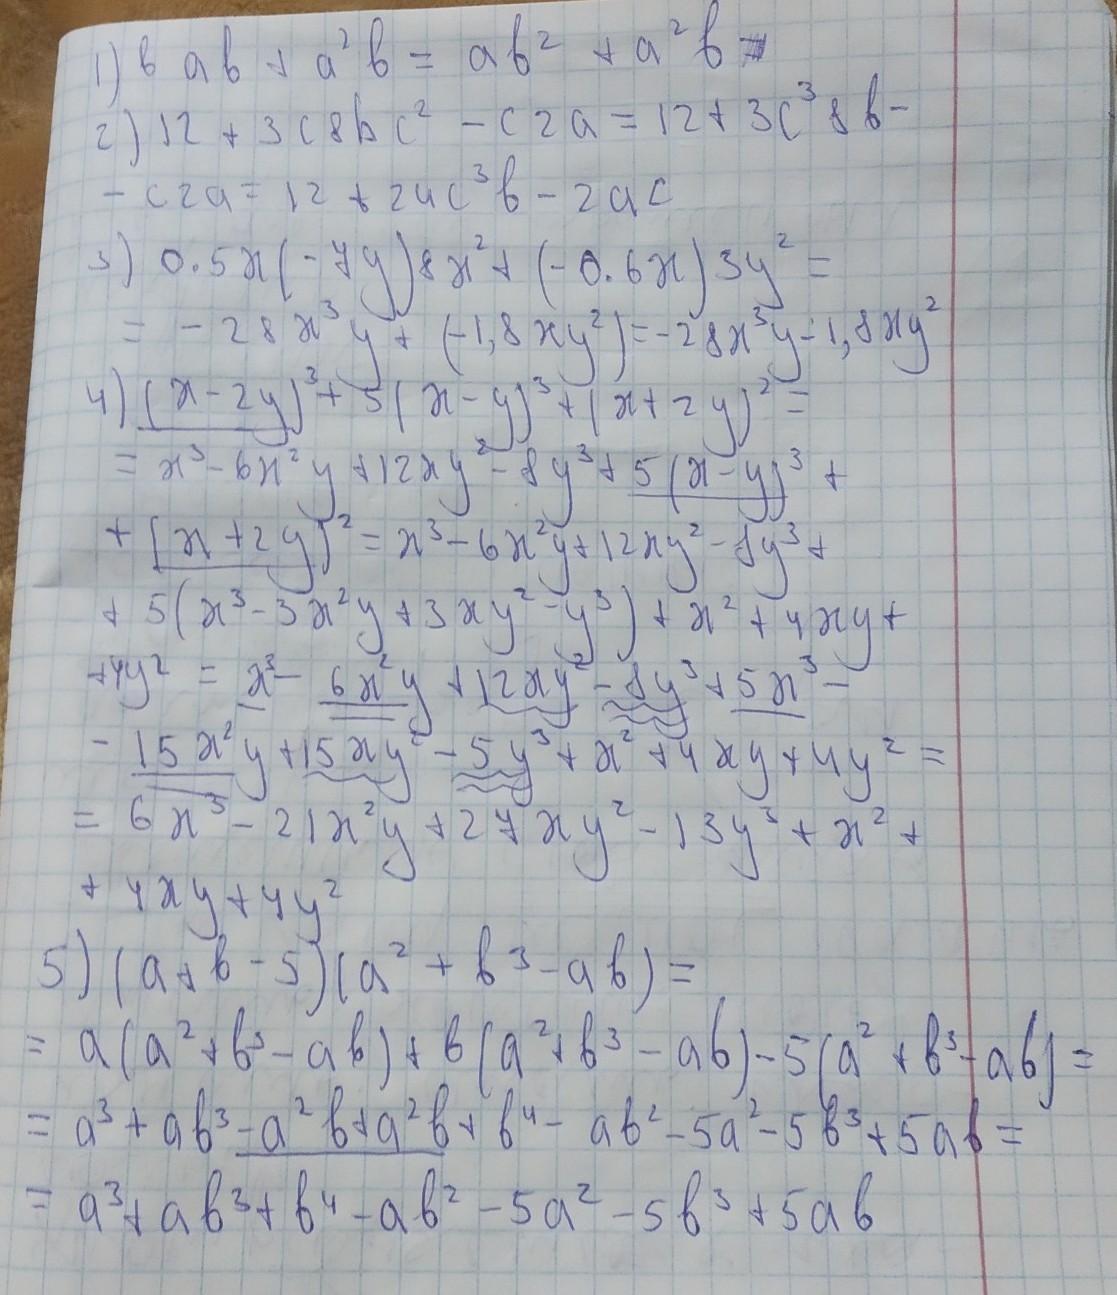 1) b ab + a²b = ab² + a²b
2) 12 + 3c8bc² - c2a = 12 + 3c³8b -
- c2a = 12 + 24c³b - 2ac
3) 0.5x(-7y)8x² + (-0.6x)3y² =
= -28x³y + (-1,8xy²) = -28x³y - 1,8xy²
4) (x - 2y)³ + 5(x - y)³ + (x + 2y)² =
= x³ - 6x²y + 12xy² - 8y³ + 5(x - y)³ +
+ (x + 2y)² = x³ - 6x²y + 12xy² - 8y³ +
+ 5(x³ - 3x²y + 3xy² - y³) + x² + 4xy +
+ 4y² = x³ - 6x²y + 12xy² - 8y³ + 5x³ -
- 15x²y + 15xy² - 5y³ + x² + 4xy + 4y² =
= 6x³ - 21x²y + 27xy² - 13y³ + x² +
+ 4xy + 4y²
5) (a + b - 5)(a² + b³ - ab) =
= a(a² + b³ - ab) + b(a² + b³ - ab) - 5(a² + b³ - ab) =
= a³ + ab³ - a²b + a²b + b⁴ - ab² - 5a² - 5b³ + 5ab =
= a³ + ab³ + b⁴ - ab² - 5a² - 5b³ + 5ab